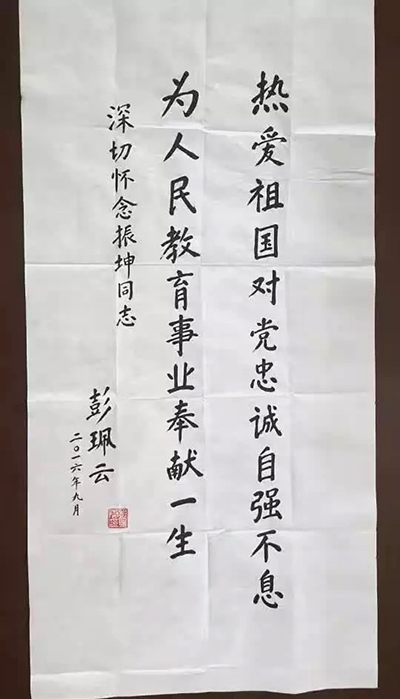 热爱祖国对党忠诚自强不息
为人民教育事业奉献一生
深切怀念振坤同志
彭珮云
二〇一六年九月